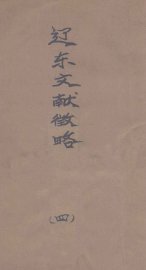 辽东文献徵略
(四)